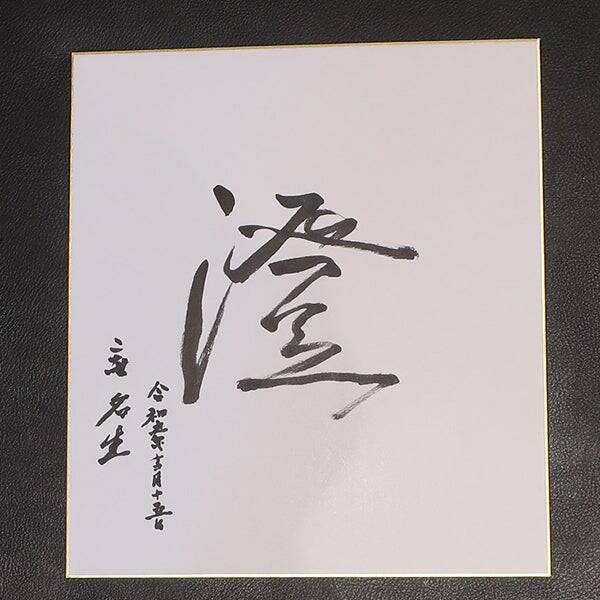 澄
令和五年十二月十五日
名生